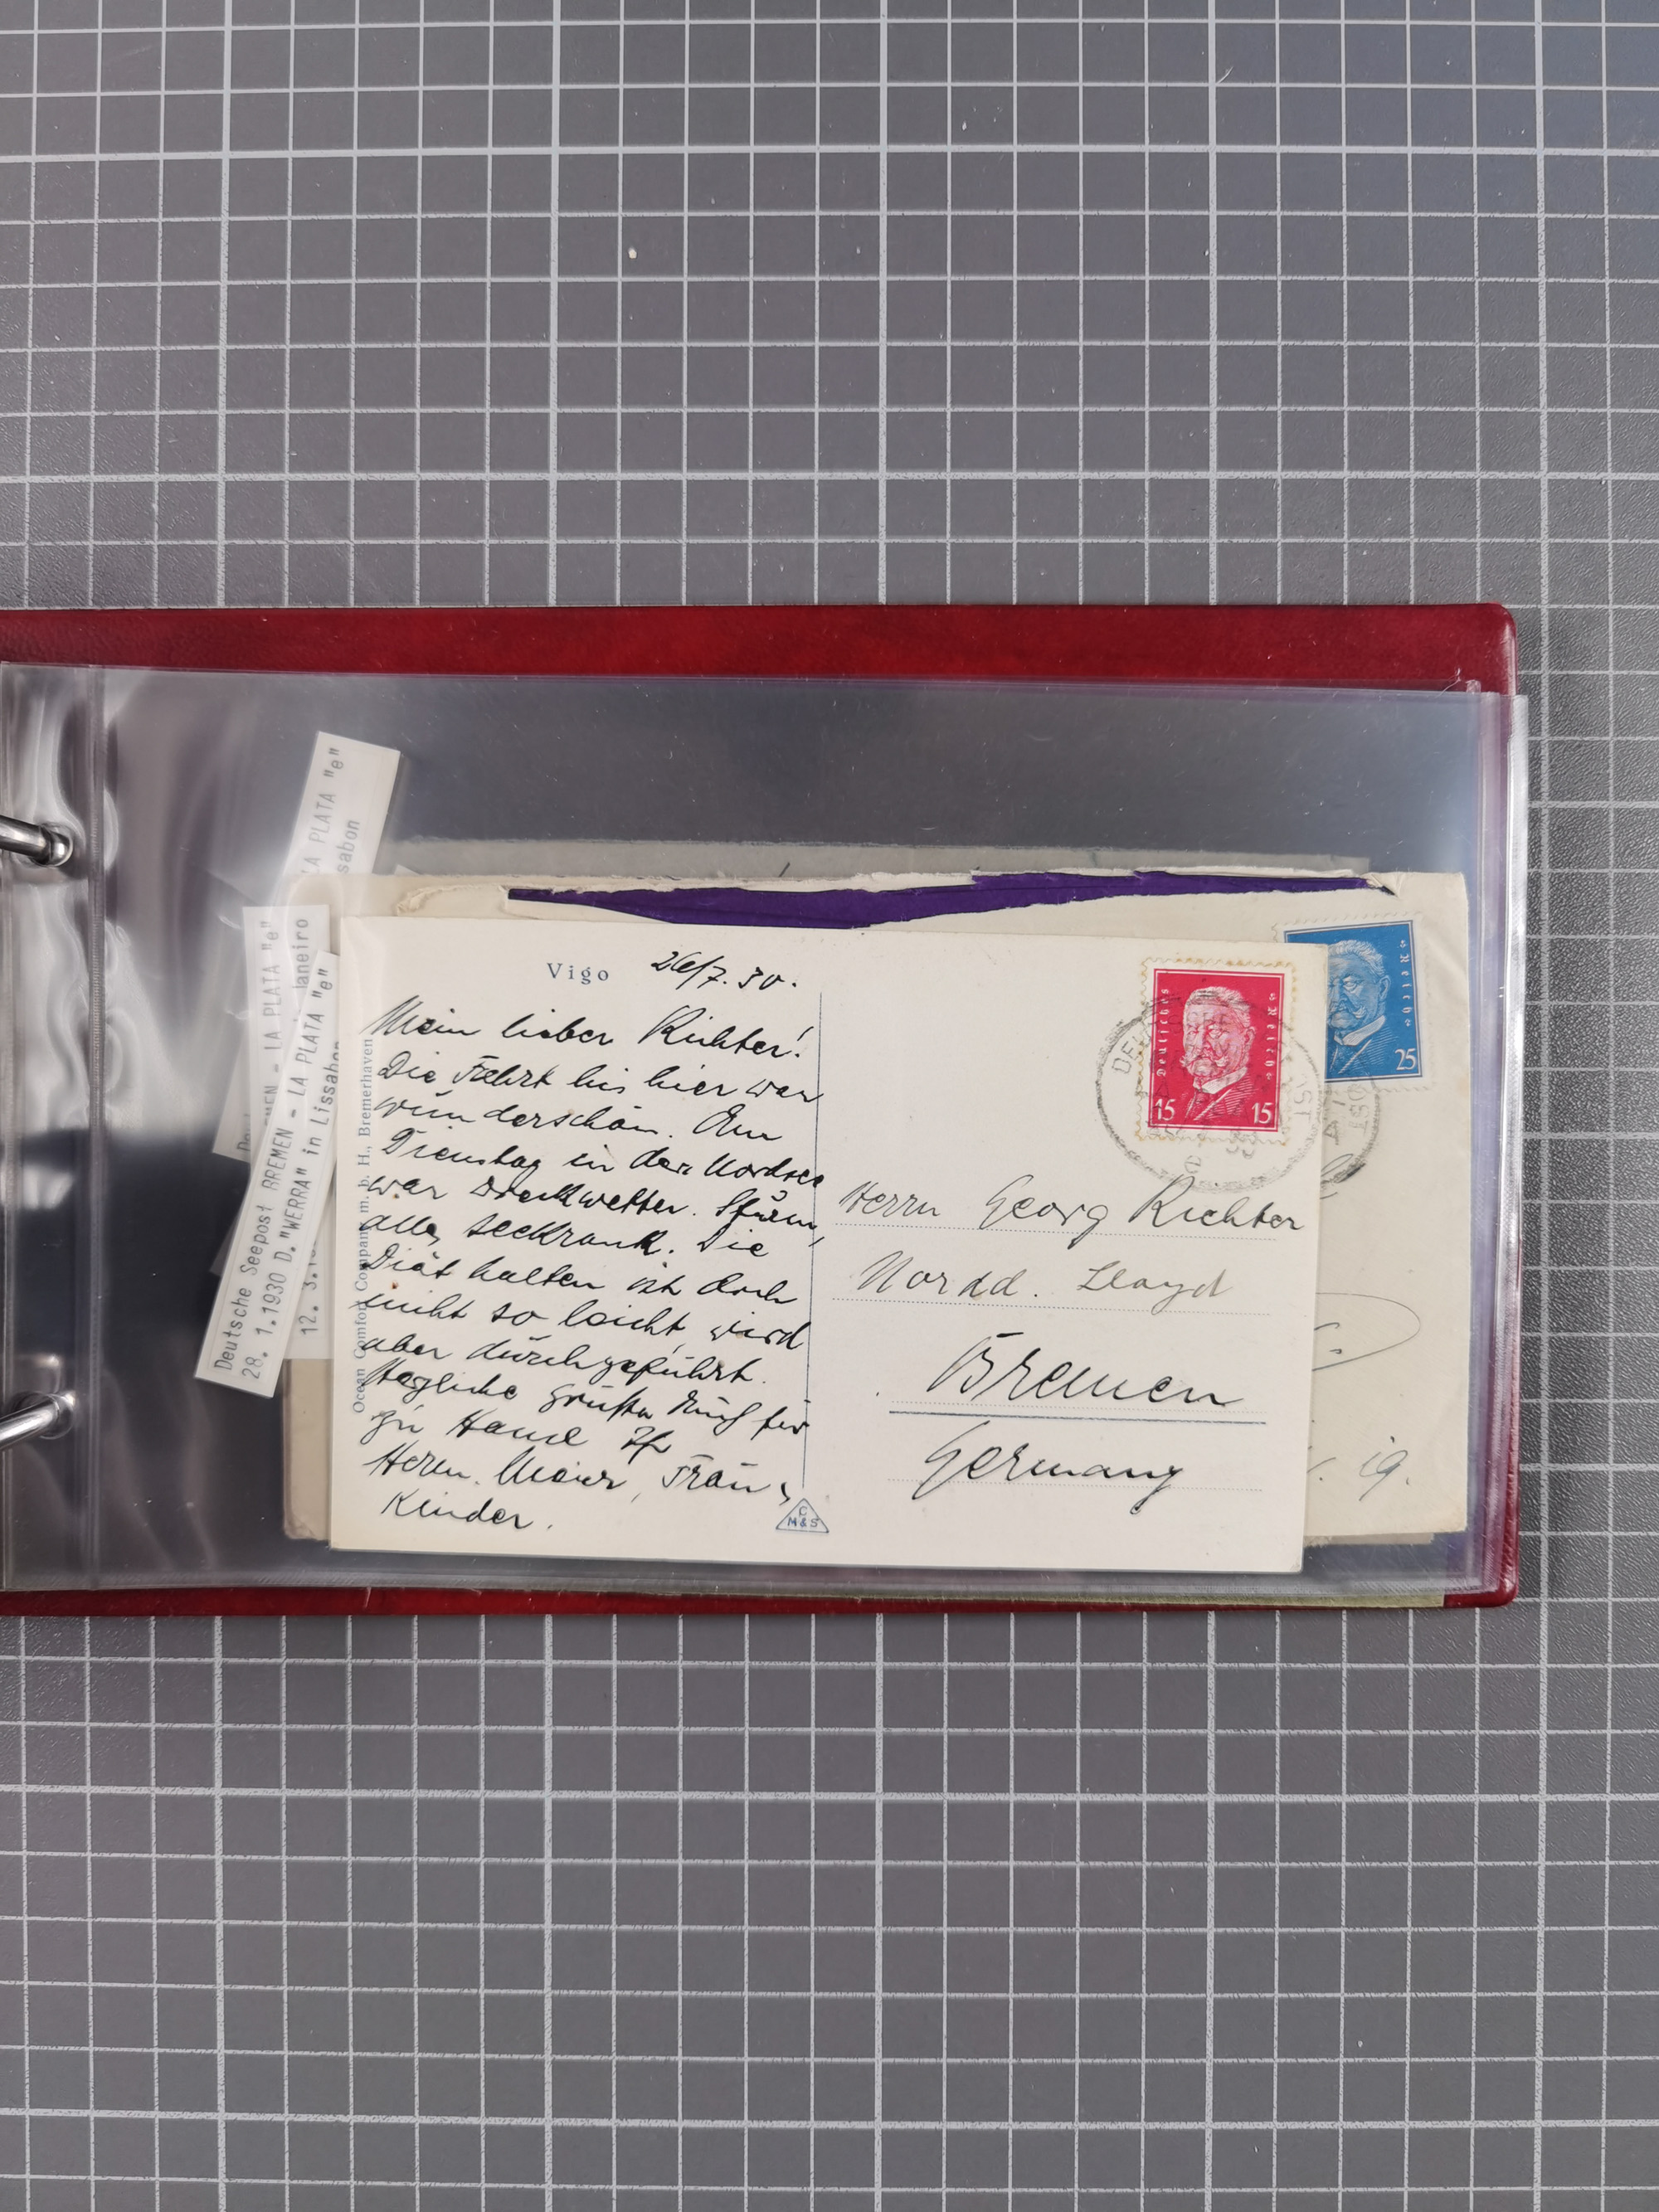 Vigo 26/7.30.
Mein lieber Richter!
Die Fahrt bis hier war
wunderschön. Am
Dienstag in der Nordsee
war Dreckwetter. Sturm,
alles seekrank. Die
Diät halten ist doch
nicht so leicht, wird
aber durchgeführt.
Herzliche Grüße für
zu Hause Ihr
Herrn. Meier, Frau,
Kinder.
Ocean Comfort Company m. b. H., Bremerhaven
C
M&S
Deutsches Reich
15 15
Herrn Georg Richter
Nordd. Lloyd
Bremen
Germany
Reich
25
19.
LA PLATA "e"
ssabon
BREMEN - LA PLATA "e"
Janeiro
12. 3.1
Deutsche Seepost BREMEN - LA PLATA "e"
28. 1.1930 D."WERRA" in Lissabon